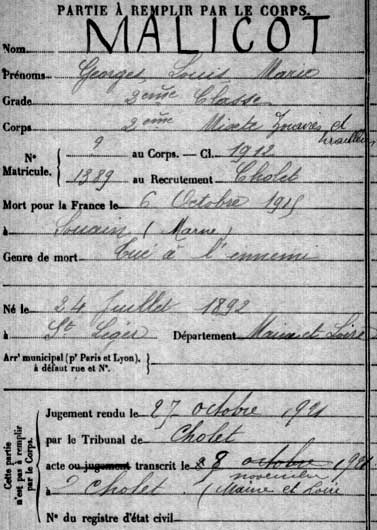 PARTIE À REMPLIR PAR LE CORPS.
Nom MALICOT
Prénoms Georges Louis Marie
Grade 2ème Classe
Corps 2ème Mixte Zouaves et tirailleurs
N° Matricule. 9 au Corps. — Cl. 1912
1389 au Recrutement Cholet
Mort pour la France le 6 Octobre 1915
à Souain (Marne)
Genre de mort Tué à l'ennemi
Né le 24 Juillet 1892
à St Léger Département Maine et Loire
Arrt municipal (pr Paris et Lyon),
à défaut rue et N°.
Cette partie n'est pas à remplir par le Corps.
Jugement rendu le 27 octobre 1921
par le Tribunal de Cholet
acte ou jugement transcrit le 8 octobre 1921
novembre
à Cholet (Maine et Loire
N° du registre d'état civil